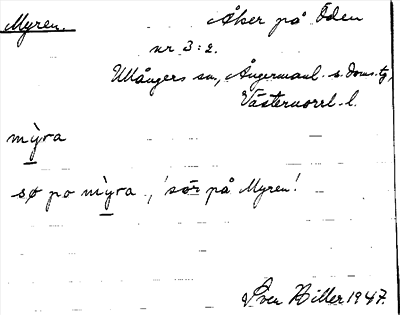 Myren. Åker på Öden
nr 3:2.
Ullångers sn, Ångermanl. s. doms.tg,
Västernorrl. l.
mỳra
sø po mỳra, 'sör på Myren'.
Sven Hiller 1947.